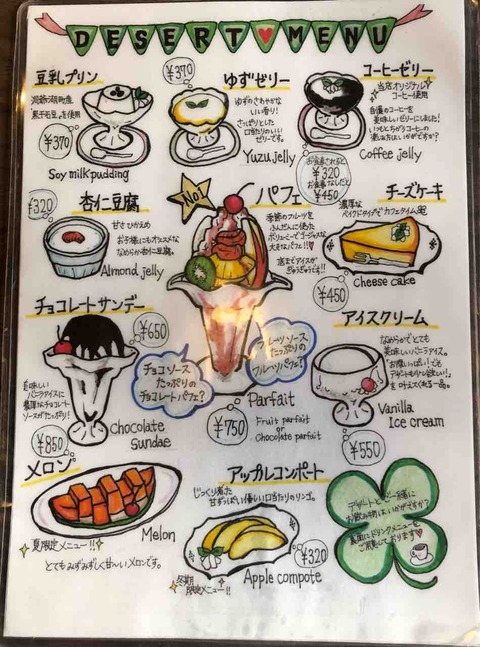 DESERT♥MENU
豆乳プリン
洞爺湖町産
"黒千石豆"を使用
¥370
Soy milk pudding
¥370
ゆずゼリー
ゆずのさわやかな
いい香り!
さっぱりとした
口当たりのいい
ゼリーです。
Yuzu jelly
コーヒーゼリー
当店オリジナル
コーヒー使用
自慢のコーヒーを
美味しいゼリーにしました!
いつもとちがうコーヒーの
楽しみ方はいかがですか?
Coffee jelly
お食事されると
¥320
お食事なしだと
¥450
¥320
杏仁豆腐
甘さひかえめ
お子様にもオススメな
なめらか杏仁豆腐。
Almond jelly
No1
パフェ
季節のフルーツを
ふんだんに使った
ボリューミーでゴージャスな
大きなパフェ!!♥
底までアイスが
ぎゅうぎゅうです!!
チョコソース
たっぷりの
チョコレートパフェ?
フルーツソース
たっぷりの
フルーツパフェ?
¥750
Parfait
Fruit parfait
or
Chocolate parfait
チーズケーキ
濃厚な
ベイクドタイプでカフェタイム
¥450
Cheese cake
チョコレートサンデー
¥650
美味しい
バニラアイスに
濃厚なチョコレート
ソースがたっぷり!
¥850
Chocolate
Sundae
アイスクリーム
なめらかでとても
美味しいバニラアイス。
"お腹いっぱい!でも
デザートも少し欲しい"
を叶えてくれる一品。
¥550
Vanilla
Ice cream
メロン
Melon
夏限定メニュー!!
とてもみずみずしく甘〜いメロンです。
アップルコンポート
じっくり煮た
甘ずっぱい優しい口当たりのリンゴ。
¥320
Apple compote
冬期
限定メニュー!!
デザートと一緒に
お飲み物はいかがですか?
裏面にドリンクメニューを
ご用意しております♥